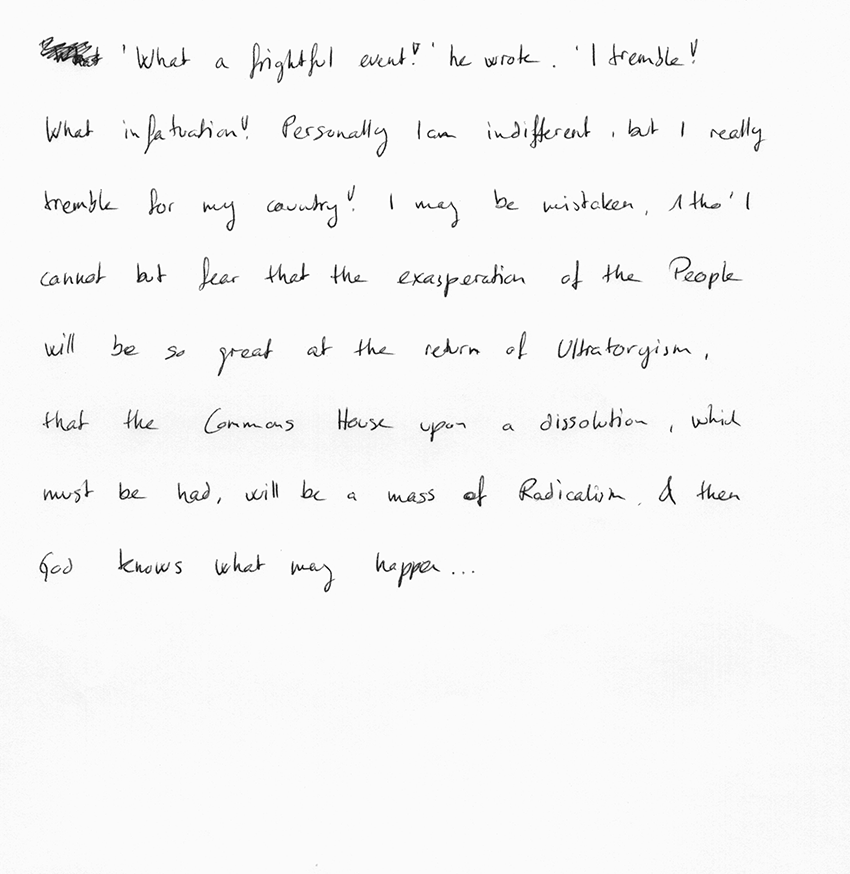 'What a frightful event!' he wrote. 'I tremble!
What infatuation! Personally I am indifferent, but I really
tremble for my country! I may be mistaken, tho' I
cannot but fear that the exasperation of the People
will be so great at the return of Ultratoryism,
that the Commons House upon a dissolution, which
must be had, will be a mass of Radicalism. & then
God knows what may happen...